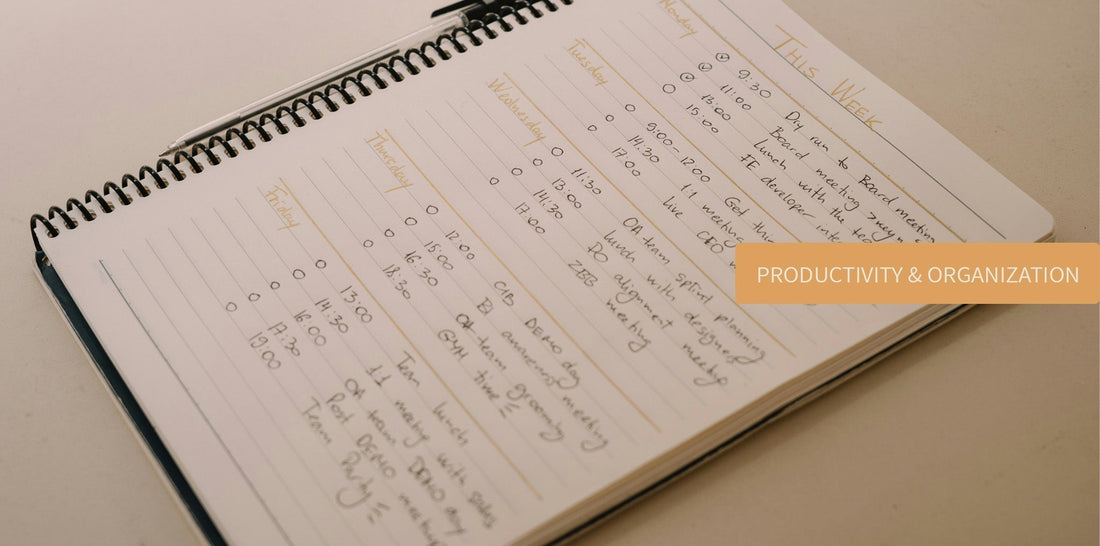 THIS WEEK
Monday
9:30 Dry run to Board meeting
11:00 Board meeting
13:00 Lunch with the
15:00 FE developer
Tuesday
9:00 - 12:00 Get
14:30 1:1 meeting
17:00 Live CEO
Wednesday
11:30 QA team, sprint planning
13:00 lunch with designers
14:30 PO alignment meetup
17:00 ZBB meeting
Thursday
12:00 DEMO day
15:00 BI awareness meeting
16:30 QA team grooming
18:30 GYM time =
Friday
13:00 Team lunch
14:30 1:1 meeting with sales
16:00 QA team DEMO day
17:30 Post DEMO meetup
19:00 Team Party =
PRODUCTIVITY & ORGANIZATION